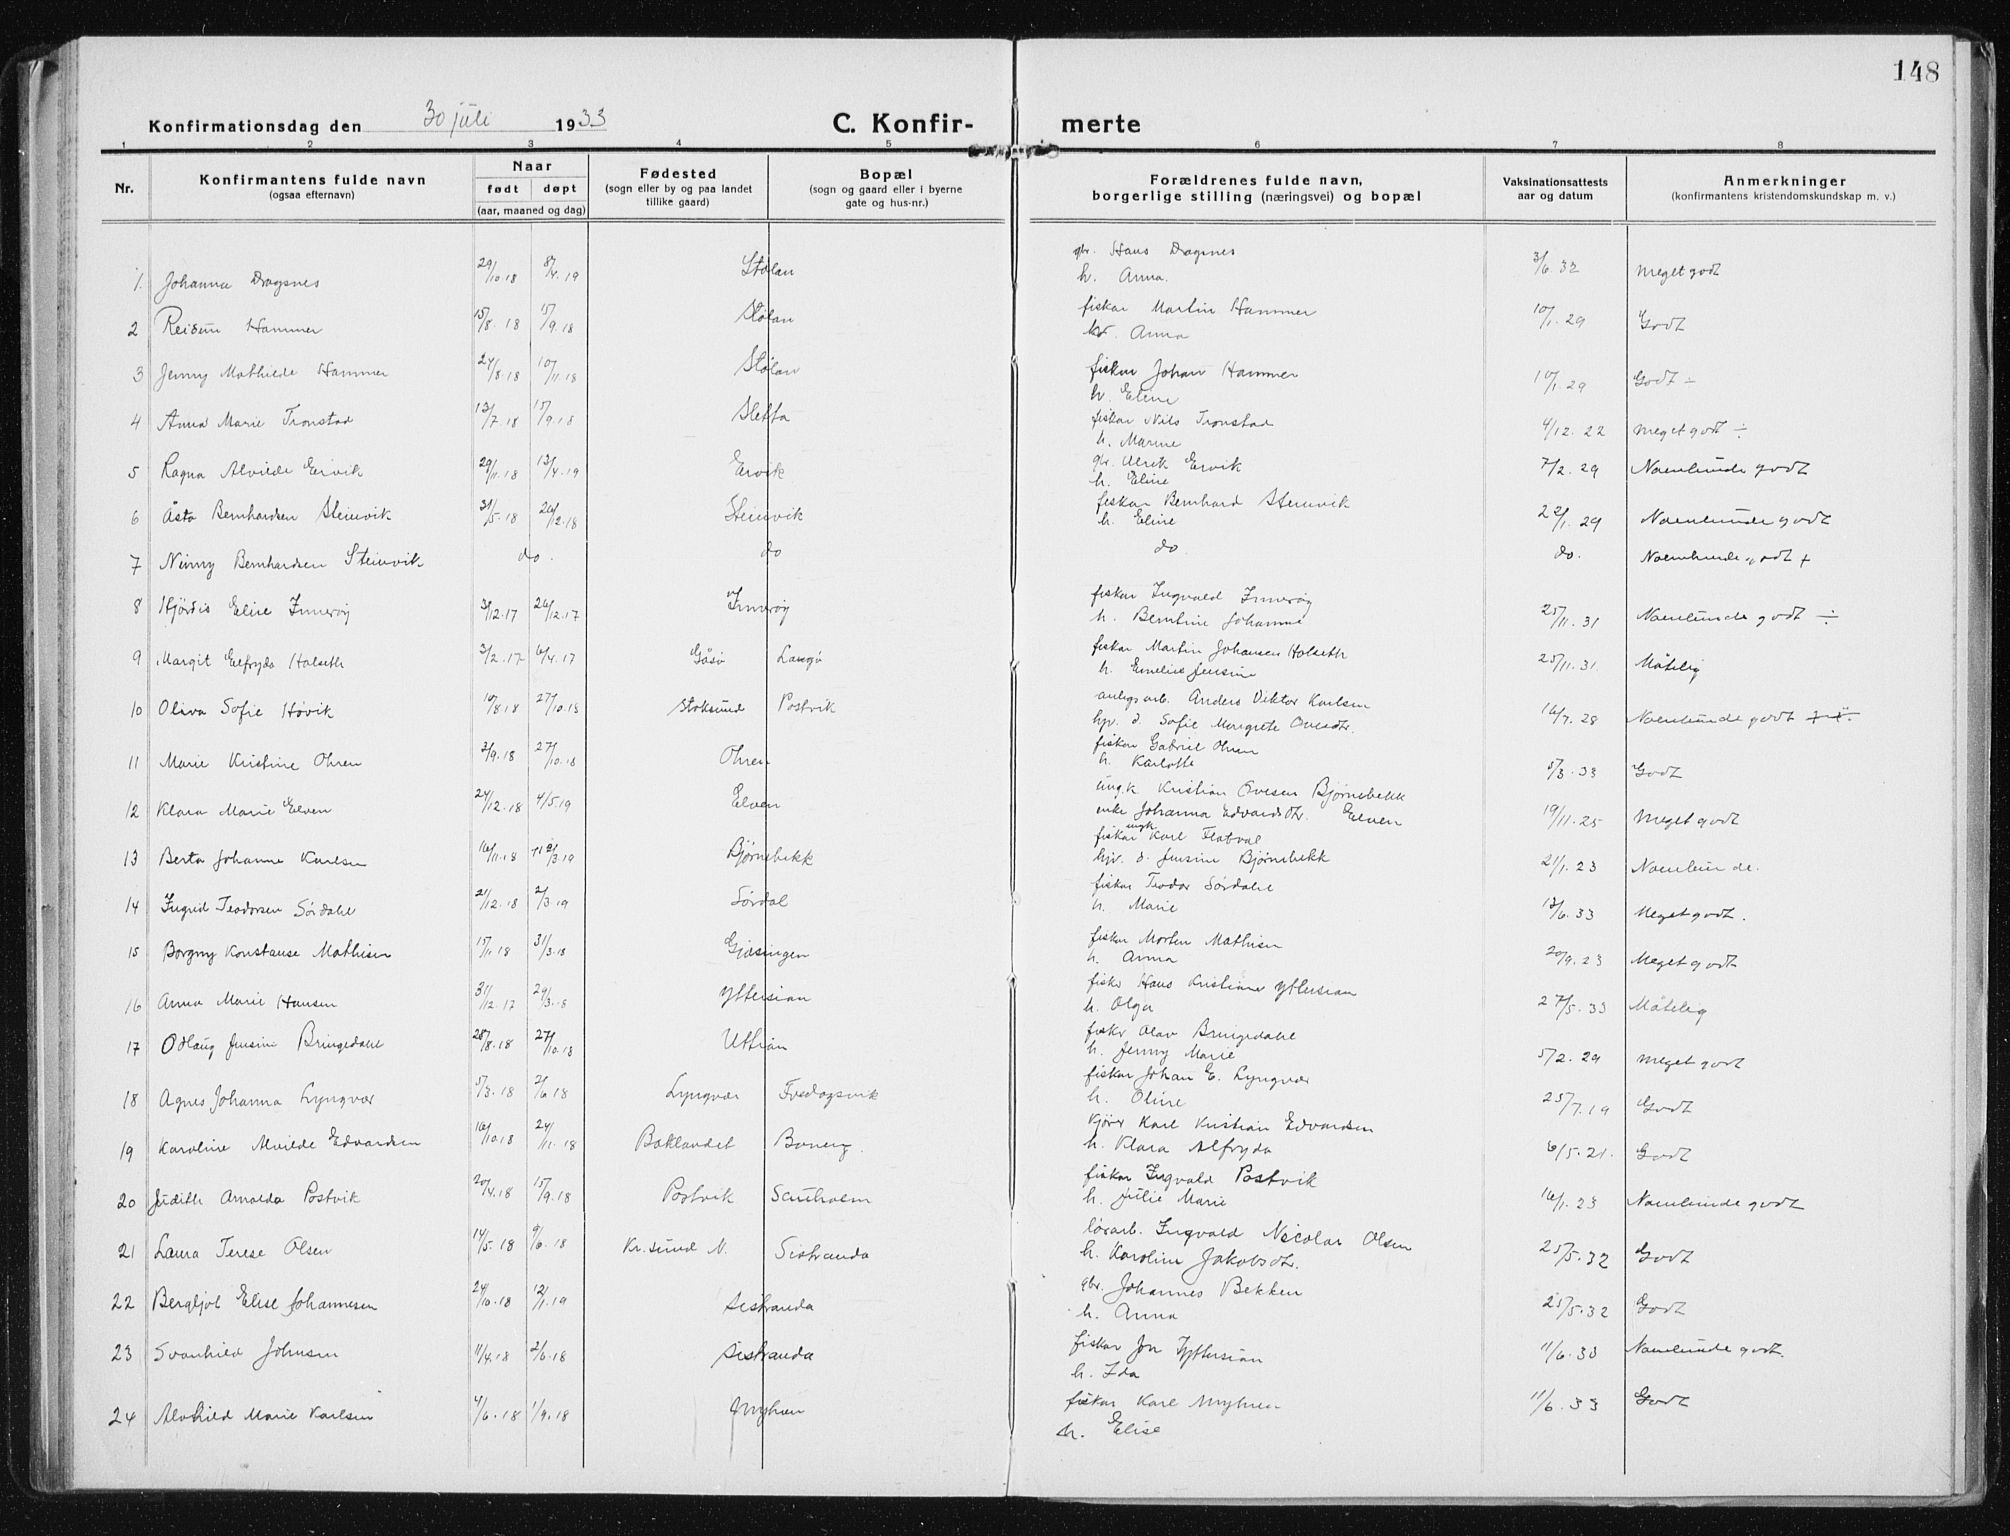 148
Konfirmationsdag den 30 juli 1933
C. Konfir- merte
1 2 3 4 5 6 7 8
Nr. Konfirmantens fulde navn (ogsaa efternavn) Naar født døpt (aar, maaned og dag) Fødested (sogn eller by og paa landet tillike gaard) Bopæl (sogn og gaard eller i byerne gate og hus-nr.) Forældrenes fulde navn, borgerlige stilling (næringsvei) og bopæl Vaksinationsattests aar og datum Anmerkninger (konfirmantens kristendomskundskap m. v.)
1. Johanna Dragsnes 29/10.18 4.19 Stølan gbr. Hans Dragsnes 3/6.32 Meget godt
h. Anna.
2 Reidun Hammer 15/8.18 15/9.18 Stølan fiskar Martin Hammer 10/1.29 Godt
Anna
3 Jenny Mathilde Hammer 24/8.18 10/11.18 Stølan fiskar Johan Hammer 10/1.29 Godt ÷
h. Eline
4 Anna Marie Tronstad 13/7.18 15/9.18 Sletta fiskar Nils Tronstad 4/12.22 Meget godt ÷
h. Marine
5 Ragna Alvilde Ervik 29/11.18 13/4.19 Ervik gbr. Ulrik Ervik 7/2.29 Noenlunde godt
h. Eline
6 Åsta Bernhardsen Steinvik 31/5.18 26/12.18 Steinvik fiskar Bernhard Steinvik 22/1.29 Noenlunde godt
h. Eline
7 Ninny Bernhardsen Steinvik do. do do do. Noenlunde godt +
8 Hjördis Elise Innerøy 3/12.17 26/12.17 Innerøy fiskar Ingvald Innerøy 25/11.31 Noenlunde godt ÷
h. Berntine Johanne
9 Margit Elfryda Holseth 3/2.17 6/4.17 Gåsø Langø fiskar Martin Johansen Holseth 25/11.31. Måtelig
h. Emelie Jensine
10 Oliva Sofie Hovik 10/8.18 27/10.18 Stoksund Postvik anlegsarb. Anders Viktor Karlsen 16/7.28 Noenlunde godt
hjv. d. Sofie Margrete
11 Marie Kristine Ohren 2/9.18 27/10.18 Ohren fiskar Gabriel Ohren 5/3.33 Godt
h. Karlotte
12 Klara Marie Elven 24/12.18 4/5.19 Elven ungk. Kristian Ovesen Bjørnebekk 19/11.25 Meget godt
enke Johanna Edvardsdtr. Elven
13 Berta Johanne Karlsen 16/11.18 3.19 Bjørnebekk fiskar ungk. Karl Flatval 21/1.23 Noenlunde.
hjv. d. Jensine Bjørnebekk
14 Ingrid Teodorsen Sørdahl 21/12.18 2/3.19 Sørdal fiskar Teodor Sørdahl 13/6.33 Meget godt.
h. Marie
15 Borgny Konstanse Mathisen 15/1.18 31/3.18 Gjæsingen fiskar Morten Mathisen 20/9.23 Meget godt
h. Anna
16 Anna Marie Hansen 31/12.17 29/3.18 Yttersian fiskr Hans Kristian Yttersian 27/5.33 Måtelig
h. Olga
17 Odlaug Jensine Bringedahl 28/8.18 27/10.18 Uttian fiskr Olav Bringedahl 5/2.29 Meget godt
h. Jenny Marie
18 Agnes Johanna Lyngvær 5/3.18 2/6.18 Lyngvær Fredagsvik fiskar Johan E. Lyngvær 25/7.19 Godt
h. Oline
19 Karoline Alvilde Edvardsen 16/10.18 24/11.18 Baklandet Bonenz. Kjører Karl Kristian Edvardsen 6/5.21. Godt
h. Klara Alfryda
20 Judith Arnolda Postvik 20/4.18 15/9.18 Postvik Sauholm fiskar Ingvald Postvik 16/1.23 Noenlunde godt
h. Julie Marie
21 Laura Terese Olsen 14/5.18 9/6.18 Kr.sund N. Sistranda løsarb. Ingvald Nicolai Olsen 25/5.32 Godt
h. Karoline Jakobsdtr.
22 Bergljot Elise Johannesen 24/10.18 12/1.19 Sistranda gbr. Johannes Bekken 25/5.32 Godt
h. Anna
23 Svanhild Johnsen 11/4.18 2/6.18 Sistranda fiskar Jon Yttersian 11/6.33 Noenlunde godt.
h. Ida
24 Alvhild Marie Karlsen 4/6.18 1/9.18 Myhren fiskar Karl Myhren 11/6.33 Godt
h. Elise